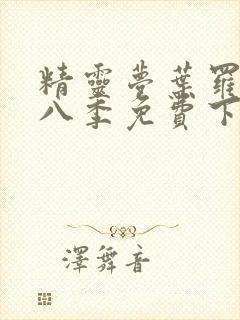 精靈夢葉羅
八季免費下
澤舞音